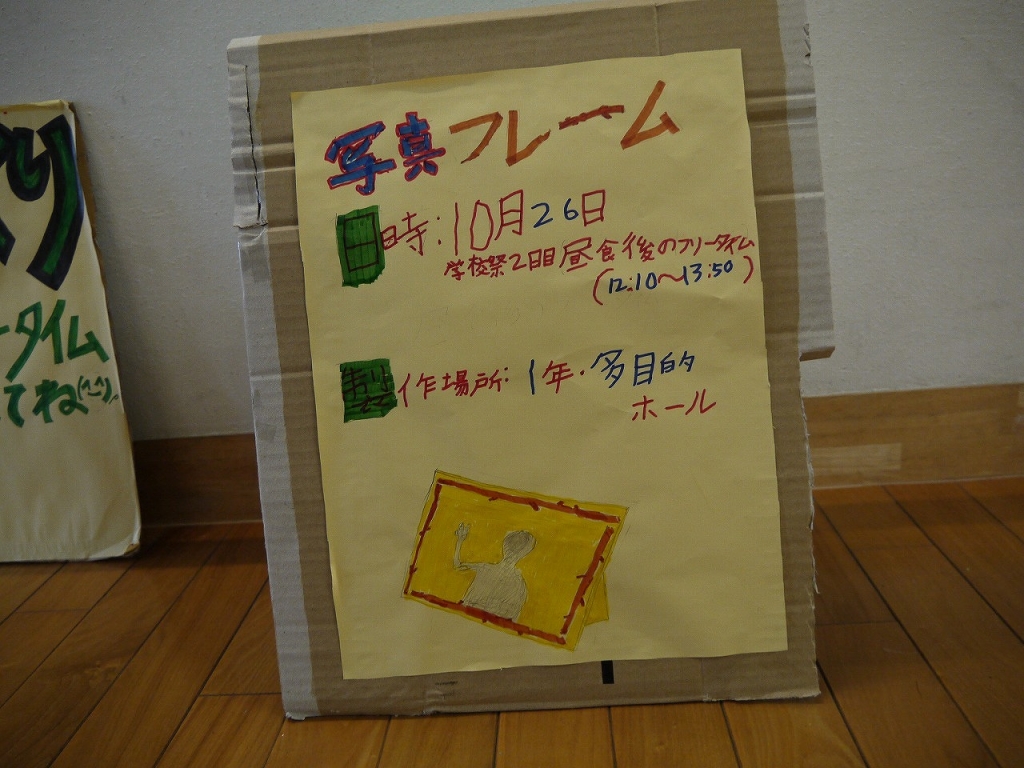 写真フレーム
日時:10月26日
学校祭2日目昼食後のフリータイム
(12:10～13:50)
製作場所:1年・多目的
ホール
り
ータイム
てね(^^)